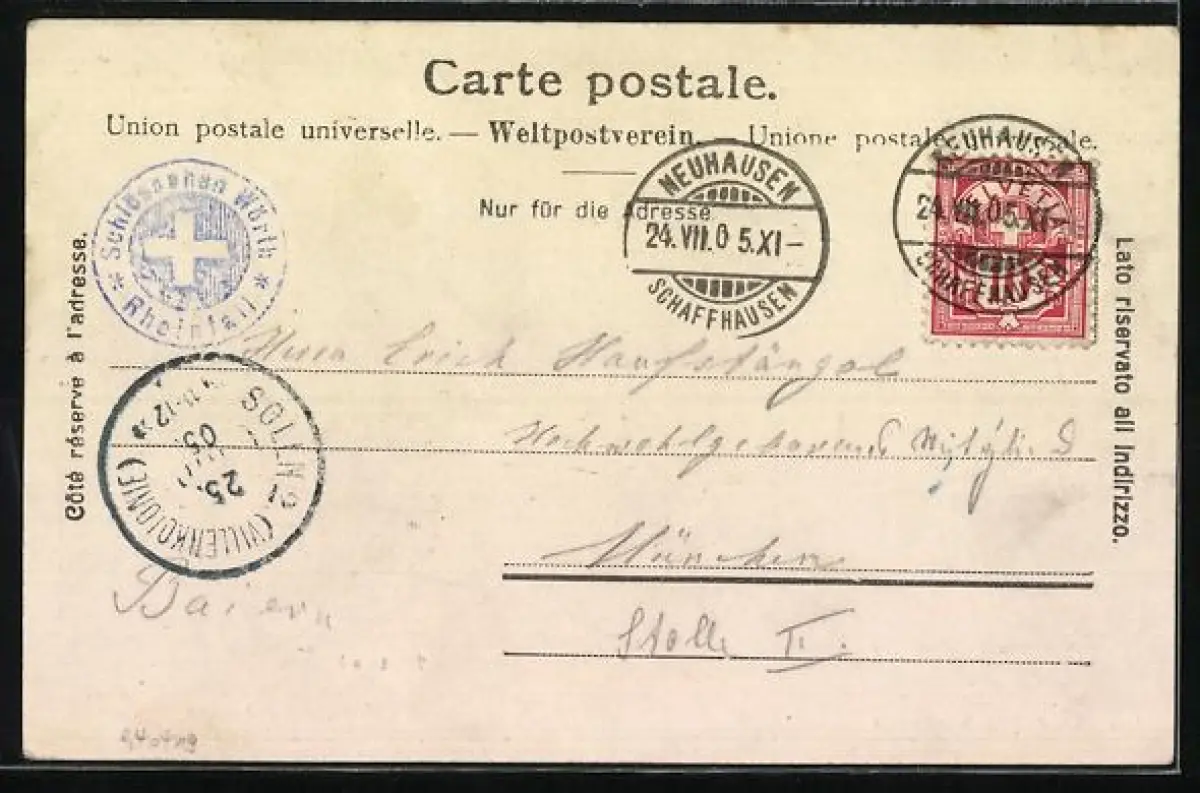 Carte postale.
Union postale universelle. — Weltpostverein. — Unione postale universale.
Nur für die Adresse.
Côté réservé à l'adresse.
Lato riservato all indirizzo.
* Schlösschen Wörth * Rheinfall
NEUHAUSEN
24.VII.05.XI–
SCHAFFHAUSEN
NEUHAUSEN
24.VII.05.XI–
SCHAFFHAUSEN
HELVETIA
10
SOLLN 2 (VILLENKOLONIE)
25.
05.
11-12
Herrn Erich Hanfstängel
Hochwohlgeboren
München
Solln II.
Baiern